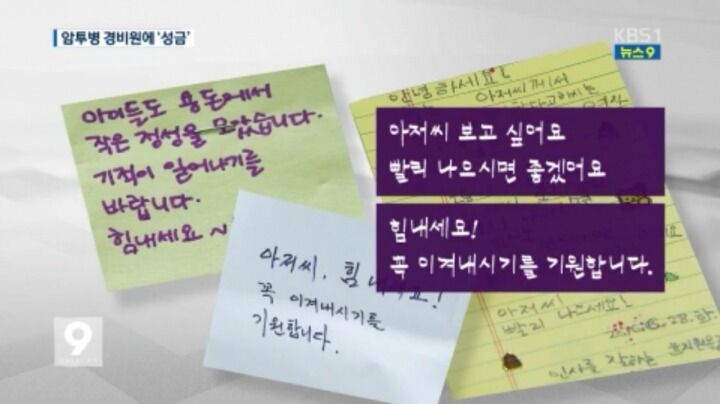 암투병 경비원에 '성금'
KBS1
뉴스9
아이들도 용돈에서
작은 정성을 모았습니다.
기적이 일어나기를
바랍니다.
힘내세요 ~
안녕하세요!
아저씨께서
아저씨 보고 싶어요
빨리 나으시면 좋겠어요
힘내세요!
꼭 이겨내시기를 기원합니다.
아저씨, 힘내세요!
꼭 이겨내시기를
기원합니다.
아저씨!
빨리 나으세요!
인사를 잘하는
9